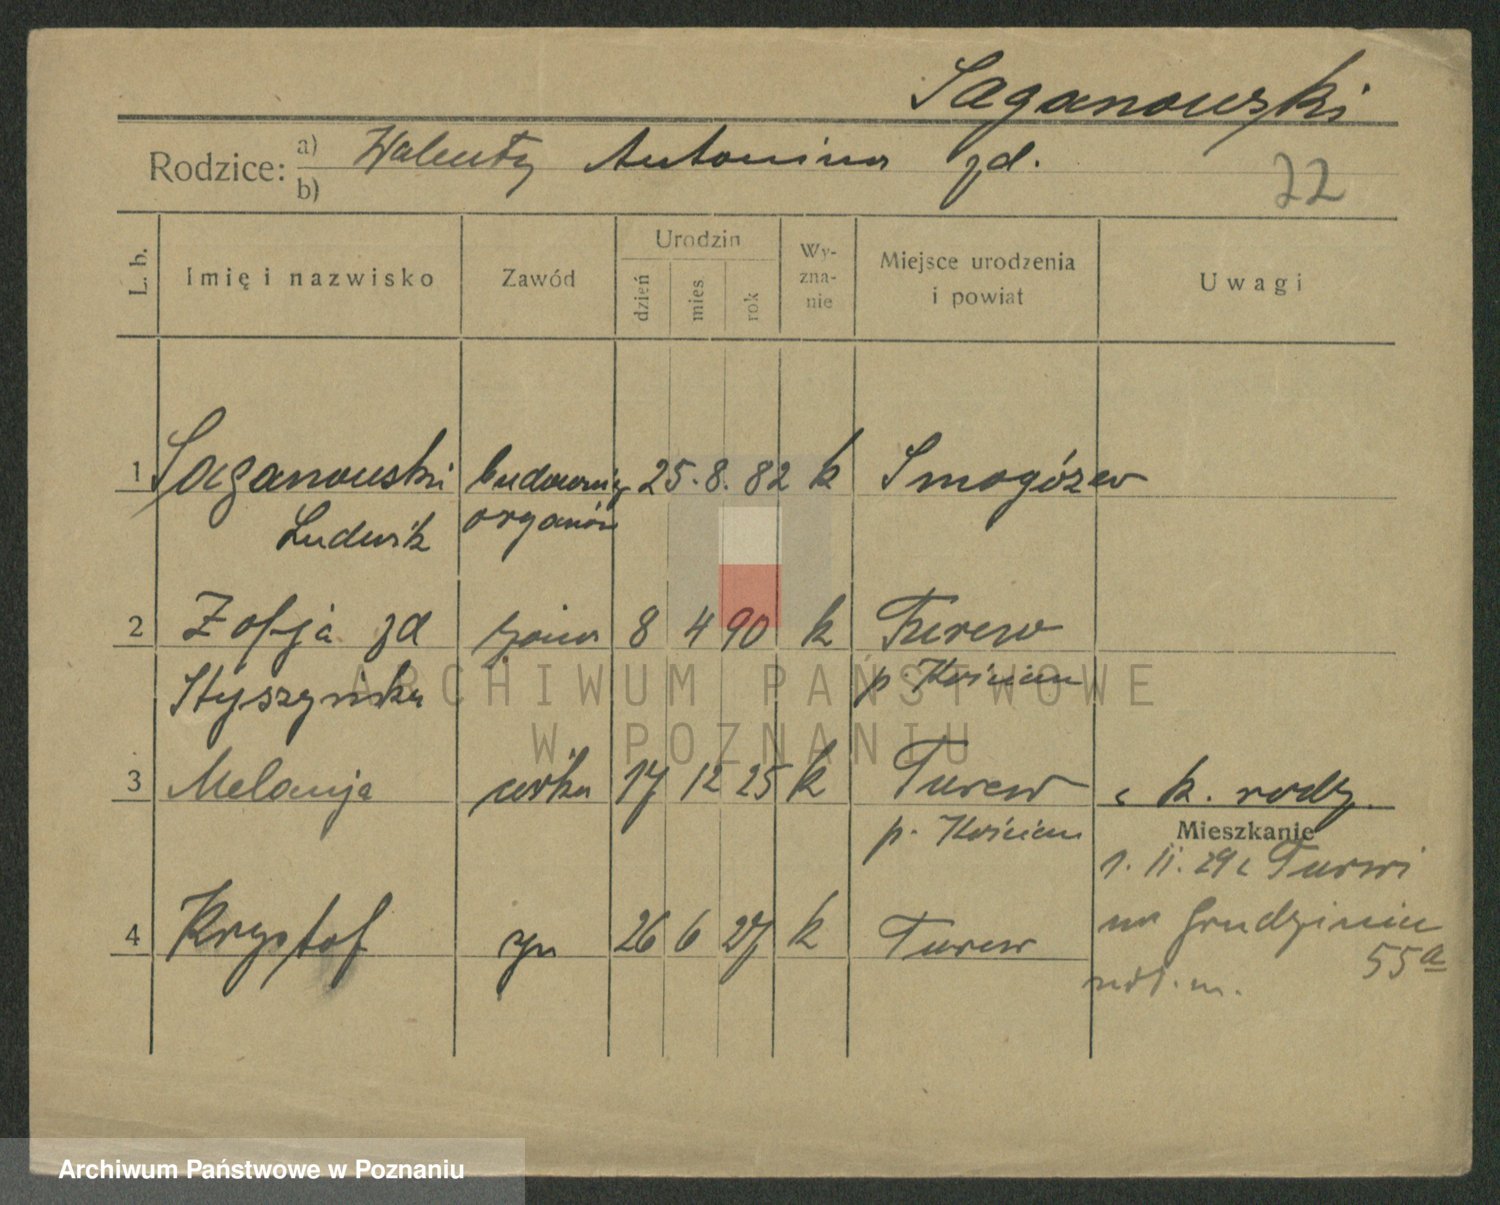 Saganowski
Rodzice: a) Walenty Antonina zd.
b)
22
L. b. Imię i nazwisko Zawód Urodzin dzień mies rok Wy-zna-nie Miejsce urodzenia i powiat Uwagi
1 Saganowski budowniczy 25. 8. 82 k Smogórzew
Ludwik organów
2 Zofja zd żona 8 4 90 k Turew
p. Kościan
3 Melanja córka 17 12 25 k Turew k. rodz.
p. Kościan Mieszkanie
1. II. 29 z Turwi
4 Krysztof syn 26 6 27 k Turew
na Grudzieniec
55a
m.
ARCHIWUM PAŃSTWOWE
W POZNANIU
Archiwum Państwowe w Poznaniu